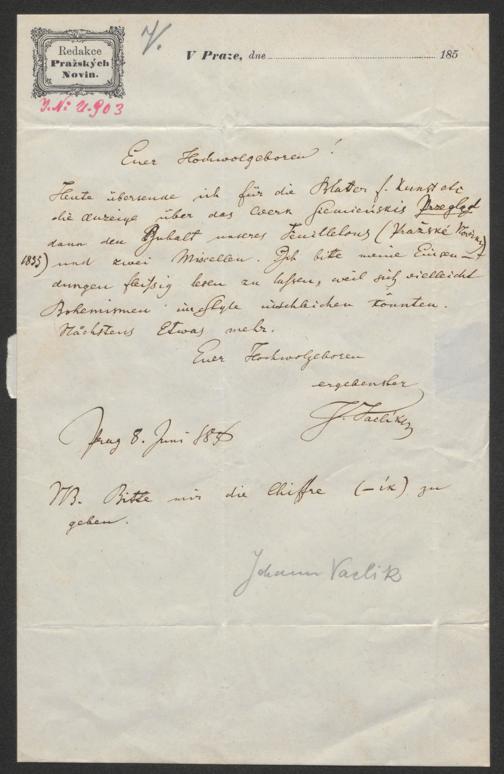 V.
Redakce
Pražských
Novin.
V Praze, dne 185
J.N: 4.903
Euer Hochwolgeboren!
Heute übersende ich für die Blätter f. Kunst etc
die Anzeige über das Werk Siemieńskis Przegląd
dann den Inhalt unseres Feuilletons (Pražské Noviny
1855) und zwei Miscellen. Ich bitte meine Einsen-
dungen fleißig lesen zu lassen, weil sich vielleicht
Bohemismen im Style einschleichen könnten.
Nächstens Etwas mehr.
Euer Hochwolgeboren
ergebenster
J. Vaclik
Prag 8. Juni
NB. Bitte mir die Chiffre (–ík) zu
geben.
Johann Vaclik